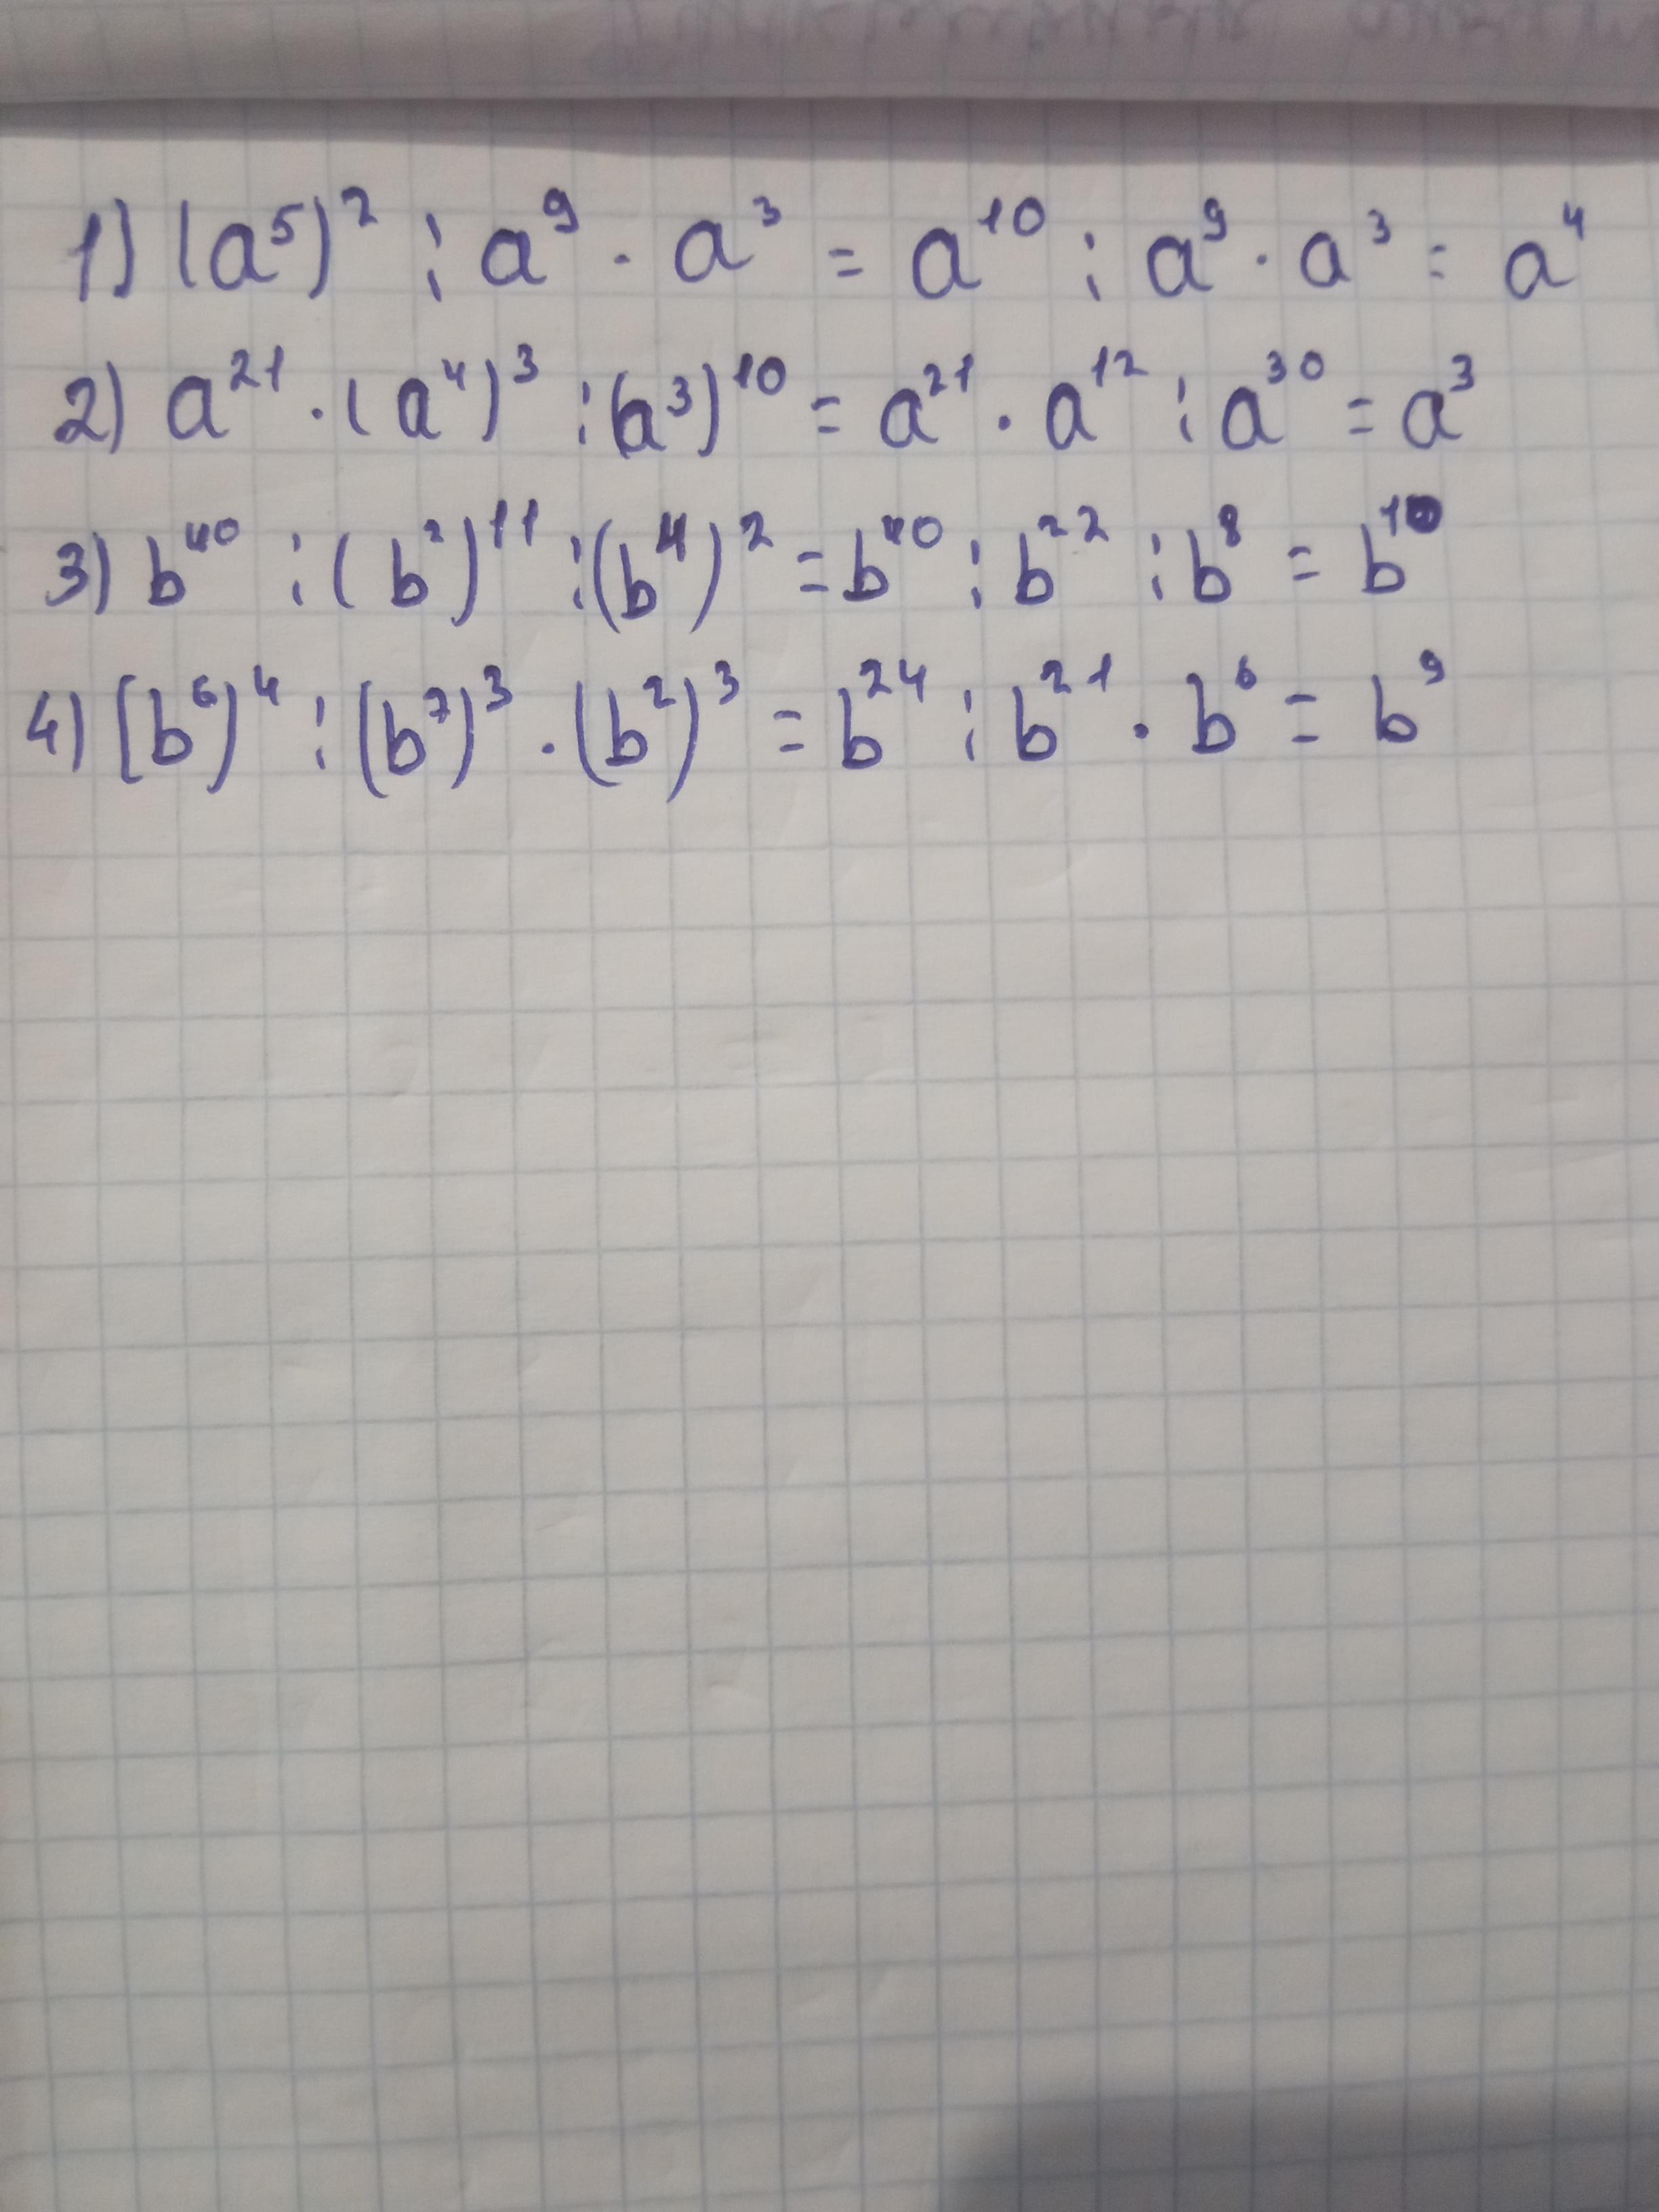 1) (a⁵)² : a⁹ · a³ = a¹⁰ : a⁹ · a³ = a⁴
2) a²¹ · (a⁴)³ : (a³)¹⁰ = a²¹ · a¹² : a³⁰ = a³
3) b⁴⁰ : (b²)¹¹ : (b⁴)² = b⁴⁰ : b²² : b⁸ = b¹⁰
4) (b⁶)⁴ : (b⁷)³ · (b²)³ = b²⁴ : b²¹ · b⁶ = b⁹